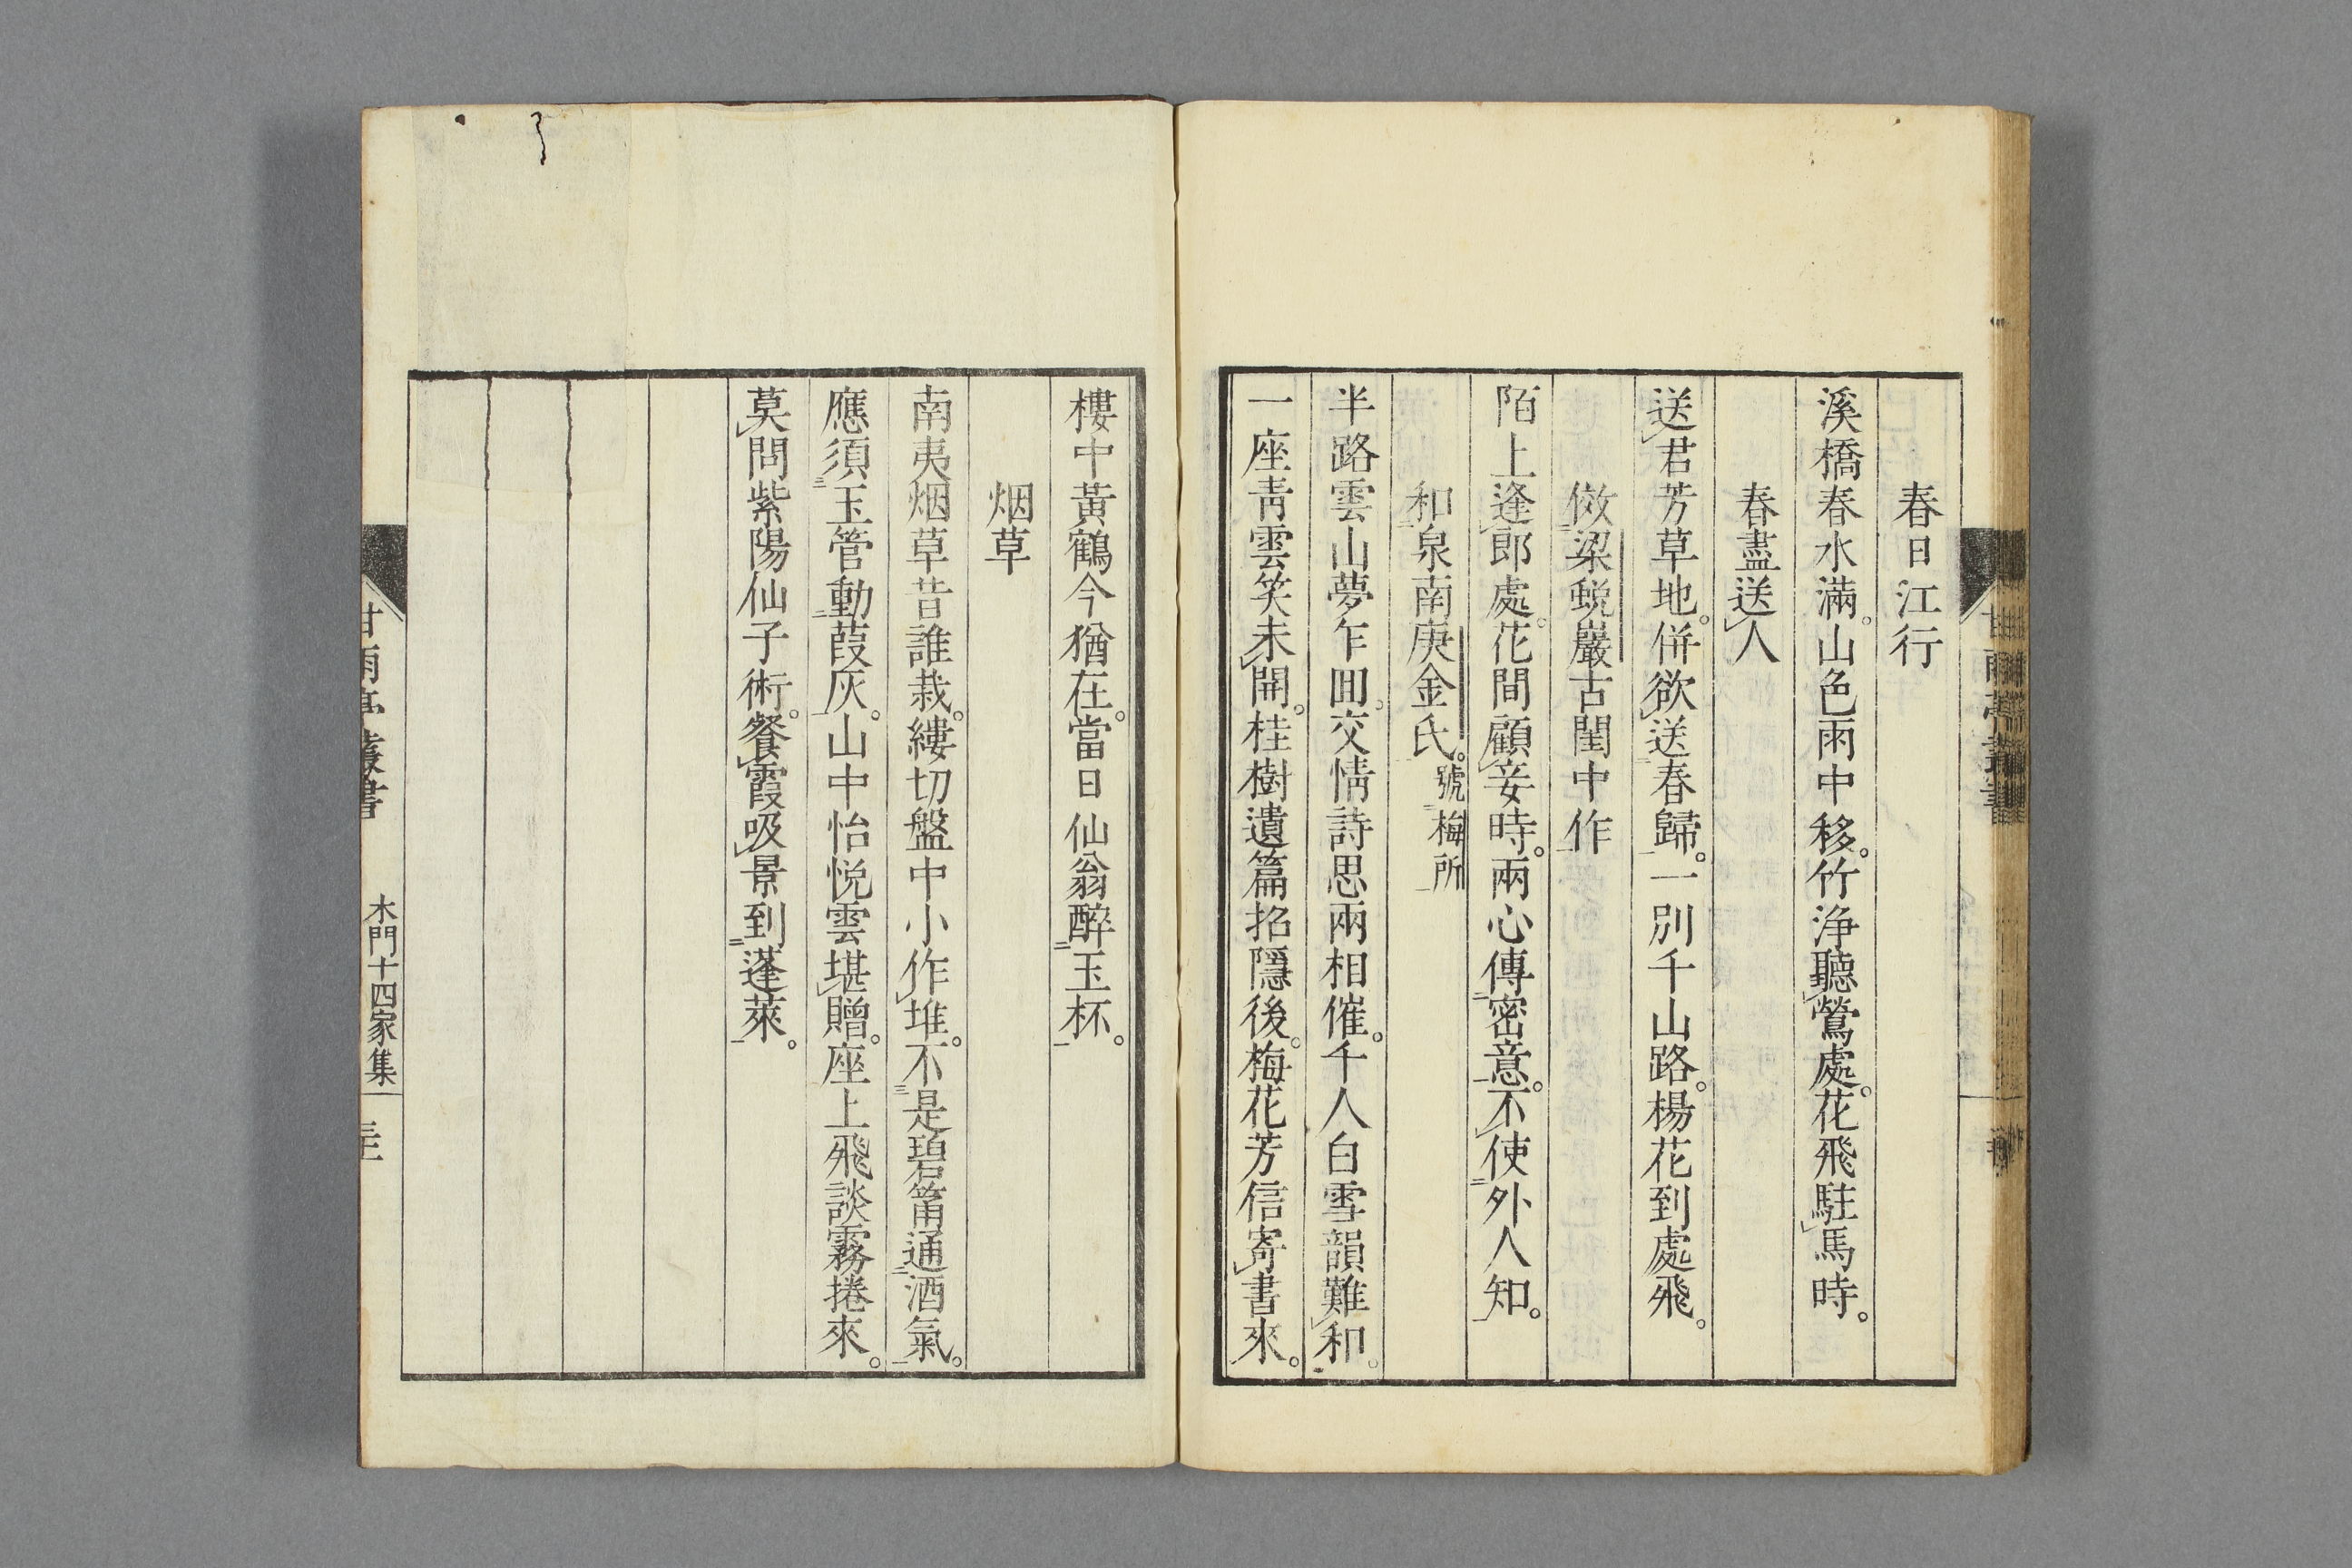 春日江行
溪橋春水滿。山色雨中移。竹浄聽鶯處。花飛駐馬時。
春盡送人
送君芳草地。併欲送春歸。一別千山路。楊花到處飛。
倣梁蛻巖古閨中作
陌上逢郎處。花間顧妾時。兩心傳密意。不使外人知。
和泉南庚金氏。號梅所
半路雲山夢乍回。交情詩思兩相催。千人白雪韻難和。
一座靑雲笑未開。桂樹遺篇招隱後。梅花芳信寄書來。
樓中黃鶴今猶在。當日仙翁醉玉杯。
烟草
南夷烟草昔誰栽。縷切盤中小作堆。不是碧筩通酒氣。
應須玉管動葭灰。山中怡悅雲堪贈。座上飛談霧捲來。
莫問紫陽仙子術。餐霞吸景到蓬萊。
甘雨亭叢書
木門十四家集